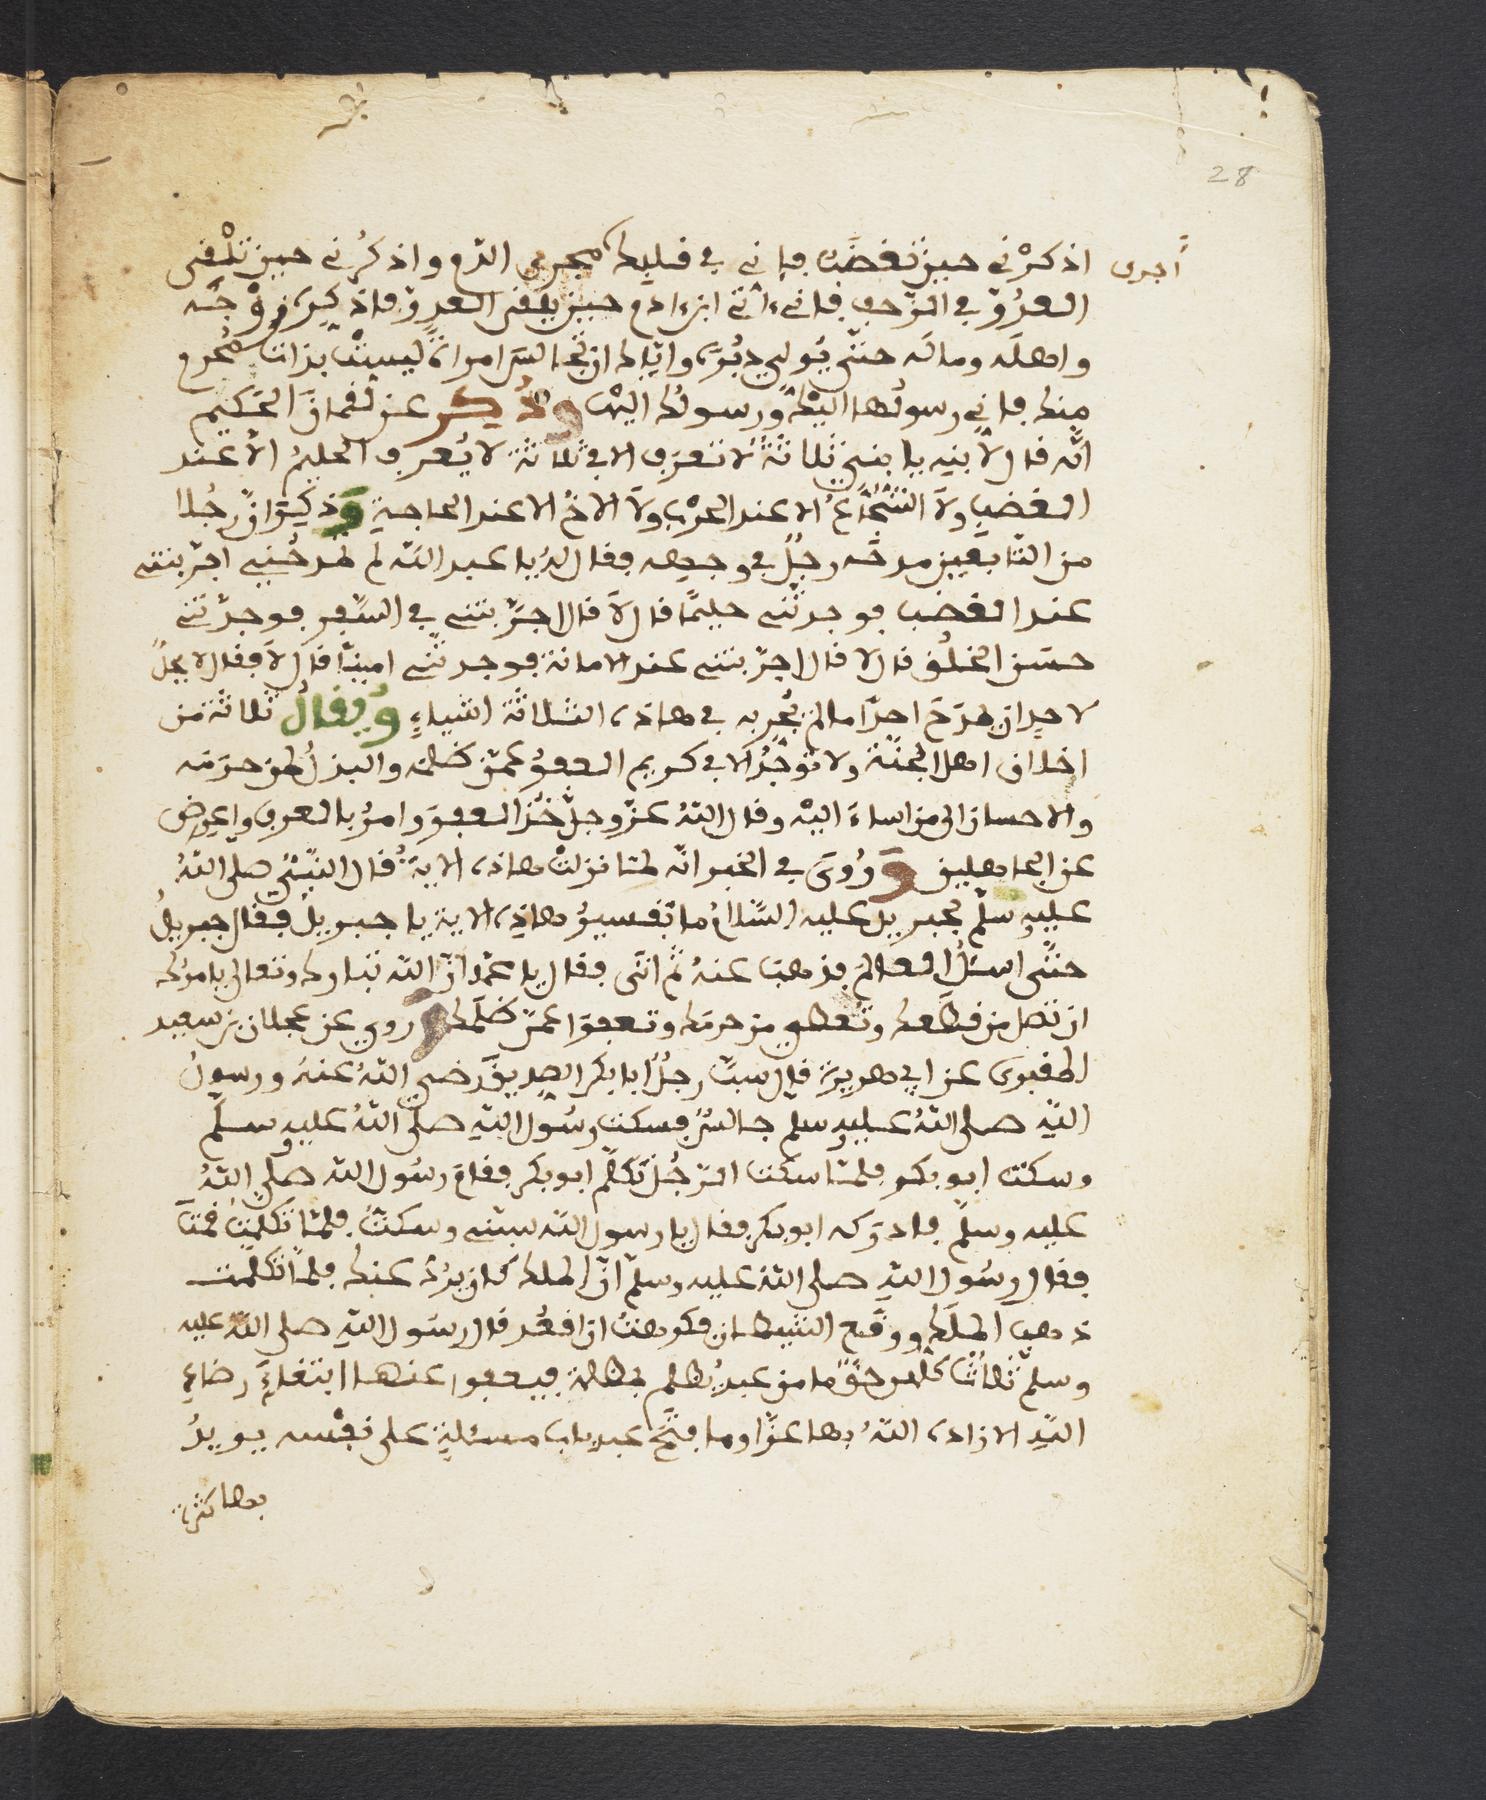 28
أجرى
اذكرني حين تغضب فإني في قلبك مجرى الدم واذكرني حين تلقى
العدو في الزحف فاني ءاتي ابن ءادم حين يلقى العدو فاذكره زوجته
واهله وماله حتى يولي دبره واياك ان تجالس امراة ليست بذات محرم
منك فاني رسولها اليك ورسولك اليها وذكر عن لقمان الحكيم
انه قال لابنه يا بني ثلاثة لا تعرف الا في ثلاثة لا يعرف الحليم الا عند
الغضب ولا الشجاع الا عند الحرب ولا الاخ الا عند الحاجة وذكر ان رجلا
من التابعين مدحه رجل في وجهه فقال له يا عبد الله لم تمدحني اجربتني
عند الغضب فوجدتني حليما قال لا قال اجربتني في السفر فوجدتني
حسن الخلق قال لا قال اجربتني عند الامانة فوجدتني امينا قال لا فقال لا يحل
لاحد ان يمدح احدا ما لم يجربه في هاذه الثلاثة اشياء ويقال ثلاثة من
اخلاق اهل الجنة ولا توجد الا في كريم العفو عمن ظلمه والبذل لمن حرمه
والاحسان الى من اساء اليه وقال الله عز وجل خذ العفو وامر بالعرف واعرض
عن الجاهلين وروي في الخبر انه لما نزلت هاذه الاية قال النبي صلى الله
عليه وسلم لجبريل عليه السلام ما تفسير هاذه الاية يا جبريل فقال جبريل
حتى اسئل العالم فذهب عنه ثم اتى فقال يا محمد ان الله تبارك وتعالى يامرك
ان تصل من قطعك وتعطي من حرمك وتعفوا عمن ظلمك وروي عن عجلان بن سعيد
المقبوى عن ابي هريرة قال سب رجل ابا بكر الصديق رضي الله عنه ورسول
الله صلى الله عليه وسلم جالس فسكت رسول الله صلى الله عليه وسلم
وسكت ابو بكر فلما سكت الرجل تكلم ابو بكر فقام رسول الله صلى الله
عليه وسلم فادركه ابو بكر فقال يا رسول الله سبني وسكت فلما تكلمت قمت
فقال رسول الله صلى الله عليه وسلم ان الملك كان يرد عنك فلما تكلمت
ذهب الملك ووقع الشيطان فكرهت ان اقعد قال رسول الله صلى الله عليه
وسلم ثلاث كلهن حق ما من عبد يظلم مظلمة فيعفوا عنها ابتغاء رضاء
الله الا زاده الله بها عزا وما فتح عبد باب مسئلة على نفسه يريد
بها كثرة